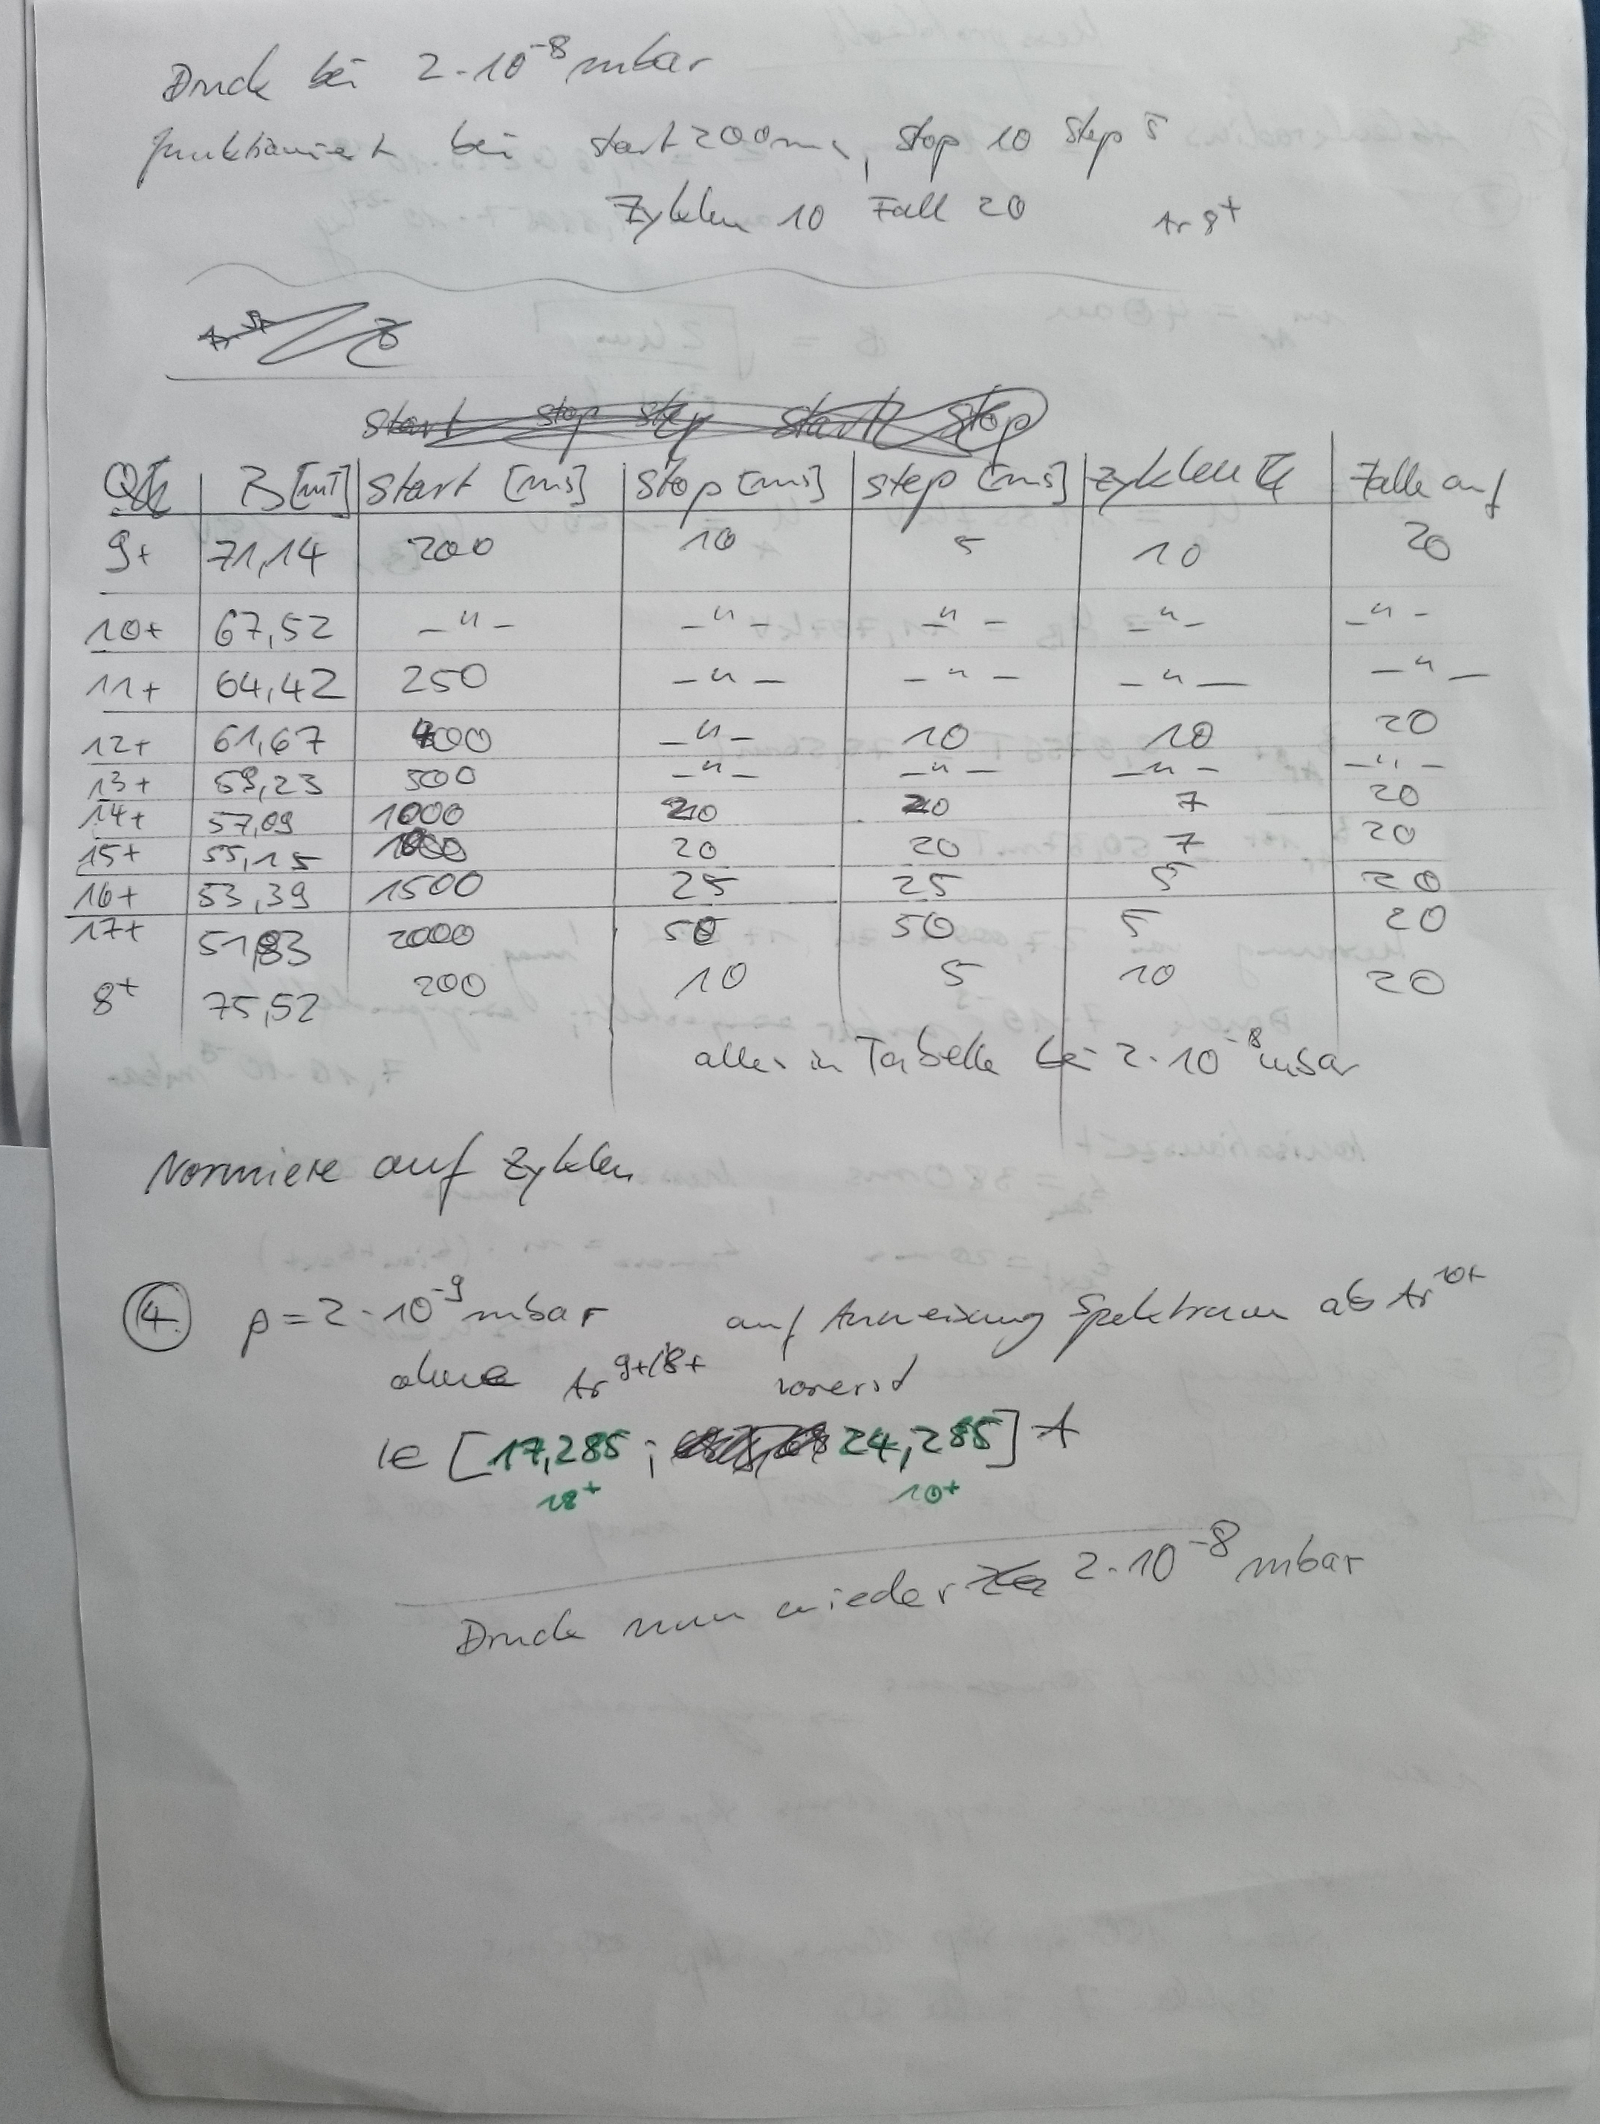 Druck bei 2·10⁻⁸ mbar
funktioniert bei start 200ms, stop 10 step 5
Zyklen 10 Fall 20 Ar 8⁺
start stop step start stop
Q B[mT] start [ms] stop [ms] step [ms] Zyklen Falle auf
9+ 71,14 200 10 5 10 20
10+ 67,52 –"– –"– –"– –"– –"–
11+ 64,42 250 –"– –"– –"– –"–
12+ 61,67 400 –"– 10 10 20
13+ 59,23 500 –"– –"– –"– –"–
14+ 57,09 1000 20 20 7 20
15+ 55,15 20 20 7 20
16+ 53,39 1500 25 25 5 20
17+ 51,83 2000 50 50 5 20
8⁺ 75,52 200 10 5 10 20
alles in Tabelle bei 2·10⁻⁸ mbar
Normiere auf Zyklen
④ p = 2·10⁻⁹ mbar auf Anweisung Spektrum ab Ar¹⁰⁺
ohne Ar⁹⁺/⁸⁺ vorerst
I∈ [17,285 ; 24,285] A
18⁺ 10⁺
Druck nun wieder 2·10⁻⁸ mbar